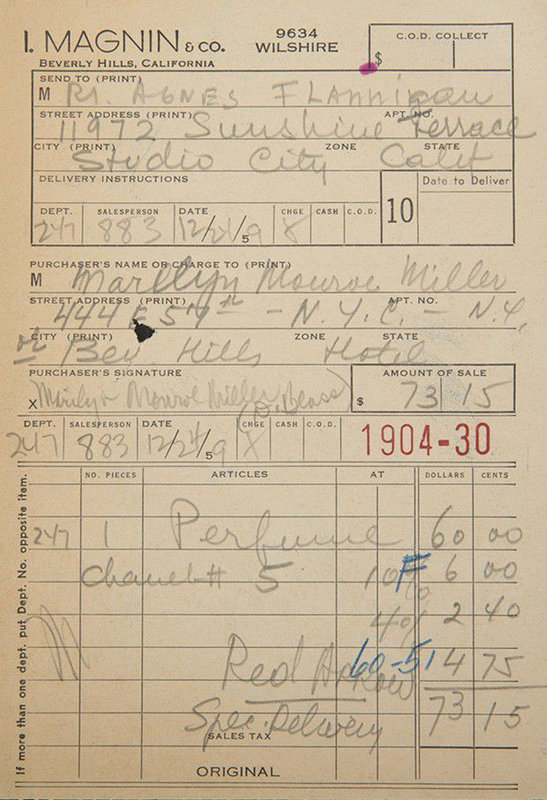 I. MAGNIN & CO. 9634 WILSHIRE
BEVERLY HILLS, CALIFORNIA
C.O.D. COLLECT
$
SEND TO (PRINT)
M Rs. AGNES FLANNIGAN
STREET ADDRESS (PRINT) APT. NO.
11972 Sunshine Terrace
CITY (PRINT) ZONE STATE
Studio City Calif
DELIVERY INSTRUCTIONS
10 Date to Deliver
DEPT. SALESPERSON DATE CHGE CASH C.O.D.
247 883 12/21/59 X
PURCHASER'S NAME OR CHARGE TO (PRINT)
M Marilyn Monroe Miller
STREET ADDRESS (PRINT) APT. NO.
444 E 57th - N.Y.C. - N.Y.
CITY (PRINT) ZONE STATE
Bev Hills Hotel
PURCHASER'S SIGNATURE
AMOUNT OF SALE
X Marilyn Monroe Miller
$ 73 15
DEPT. SALESPERSON DATE CHGE CASH C.O.D.
247 883 12/21/59 X
1904-30
NO. PIECES ARTICLES AT DOLLARS CENTS
247 1 Perfume 60 00
Chanel # 5 10% F 6 00
4% 2 40
Red Arrow 60-51 4 75
Spec. Delivery 73 15
SALES TAX
ORIGINAL
If more than one dept. put Dept. No. opposite item.